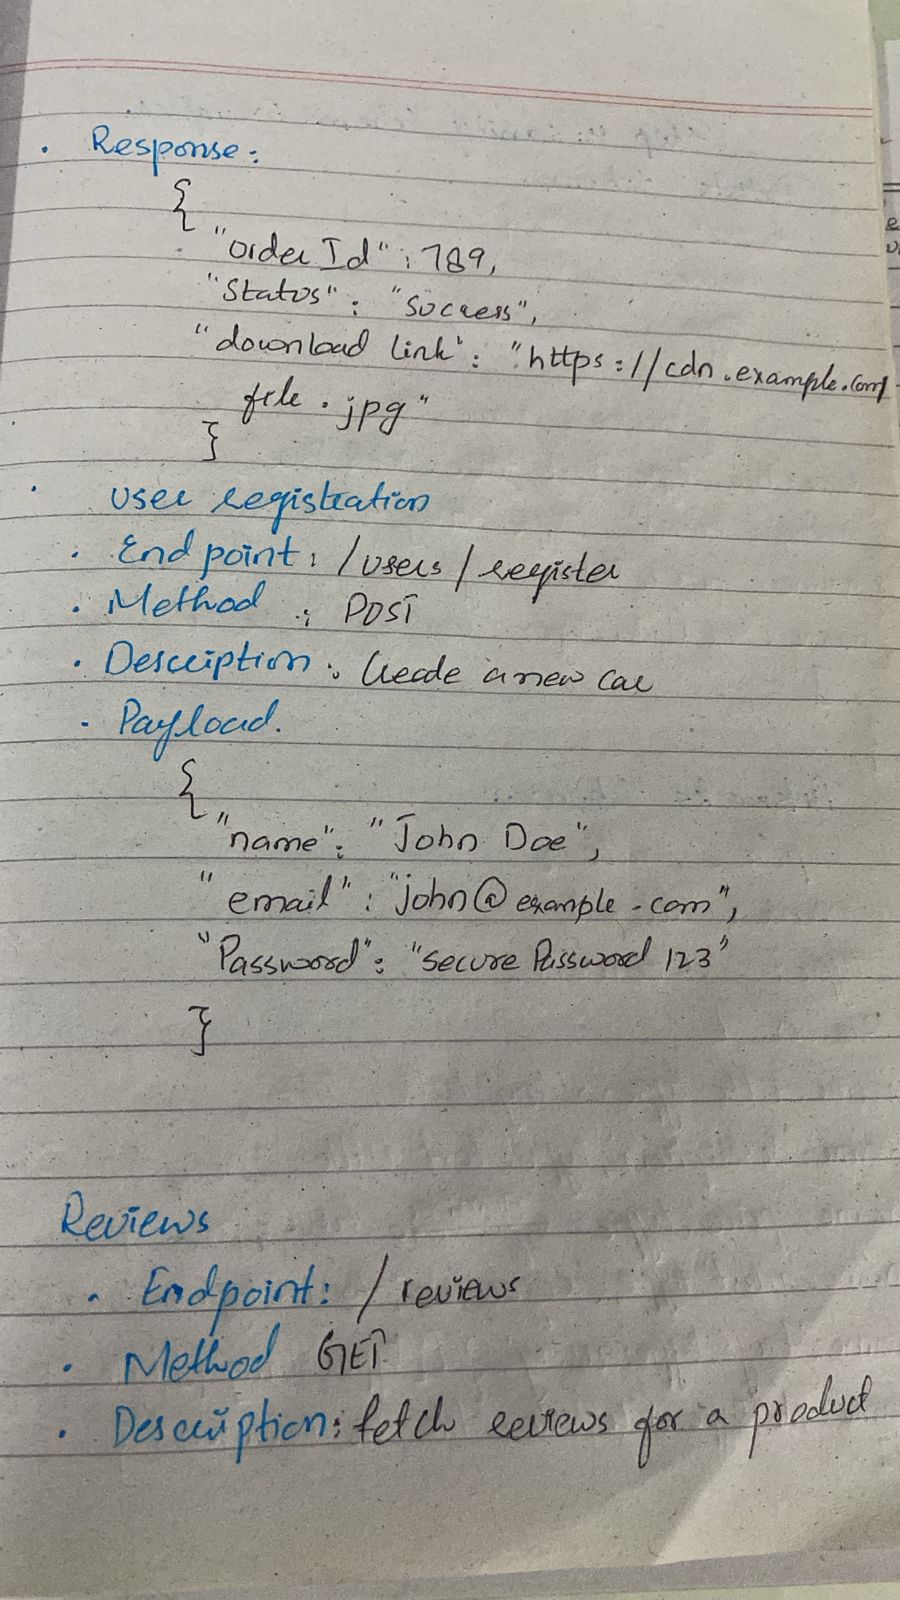 . Response:
{
"order Id" : 789,
"Status" : "Success",
"download link" : "https://cdn.example.com/
file.jpg"
}
. User registration
. End point : /users/register
. Method : POST
. Description : Create a new car
. Payload.
{
"name" : "John Doe",
"email" : "john@example.com",
"Password" : "Secure Password 123"
}
Reviews
. Endpoint: /reviews
. Method GET
. Description: fetch reviews for a product